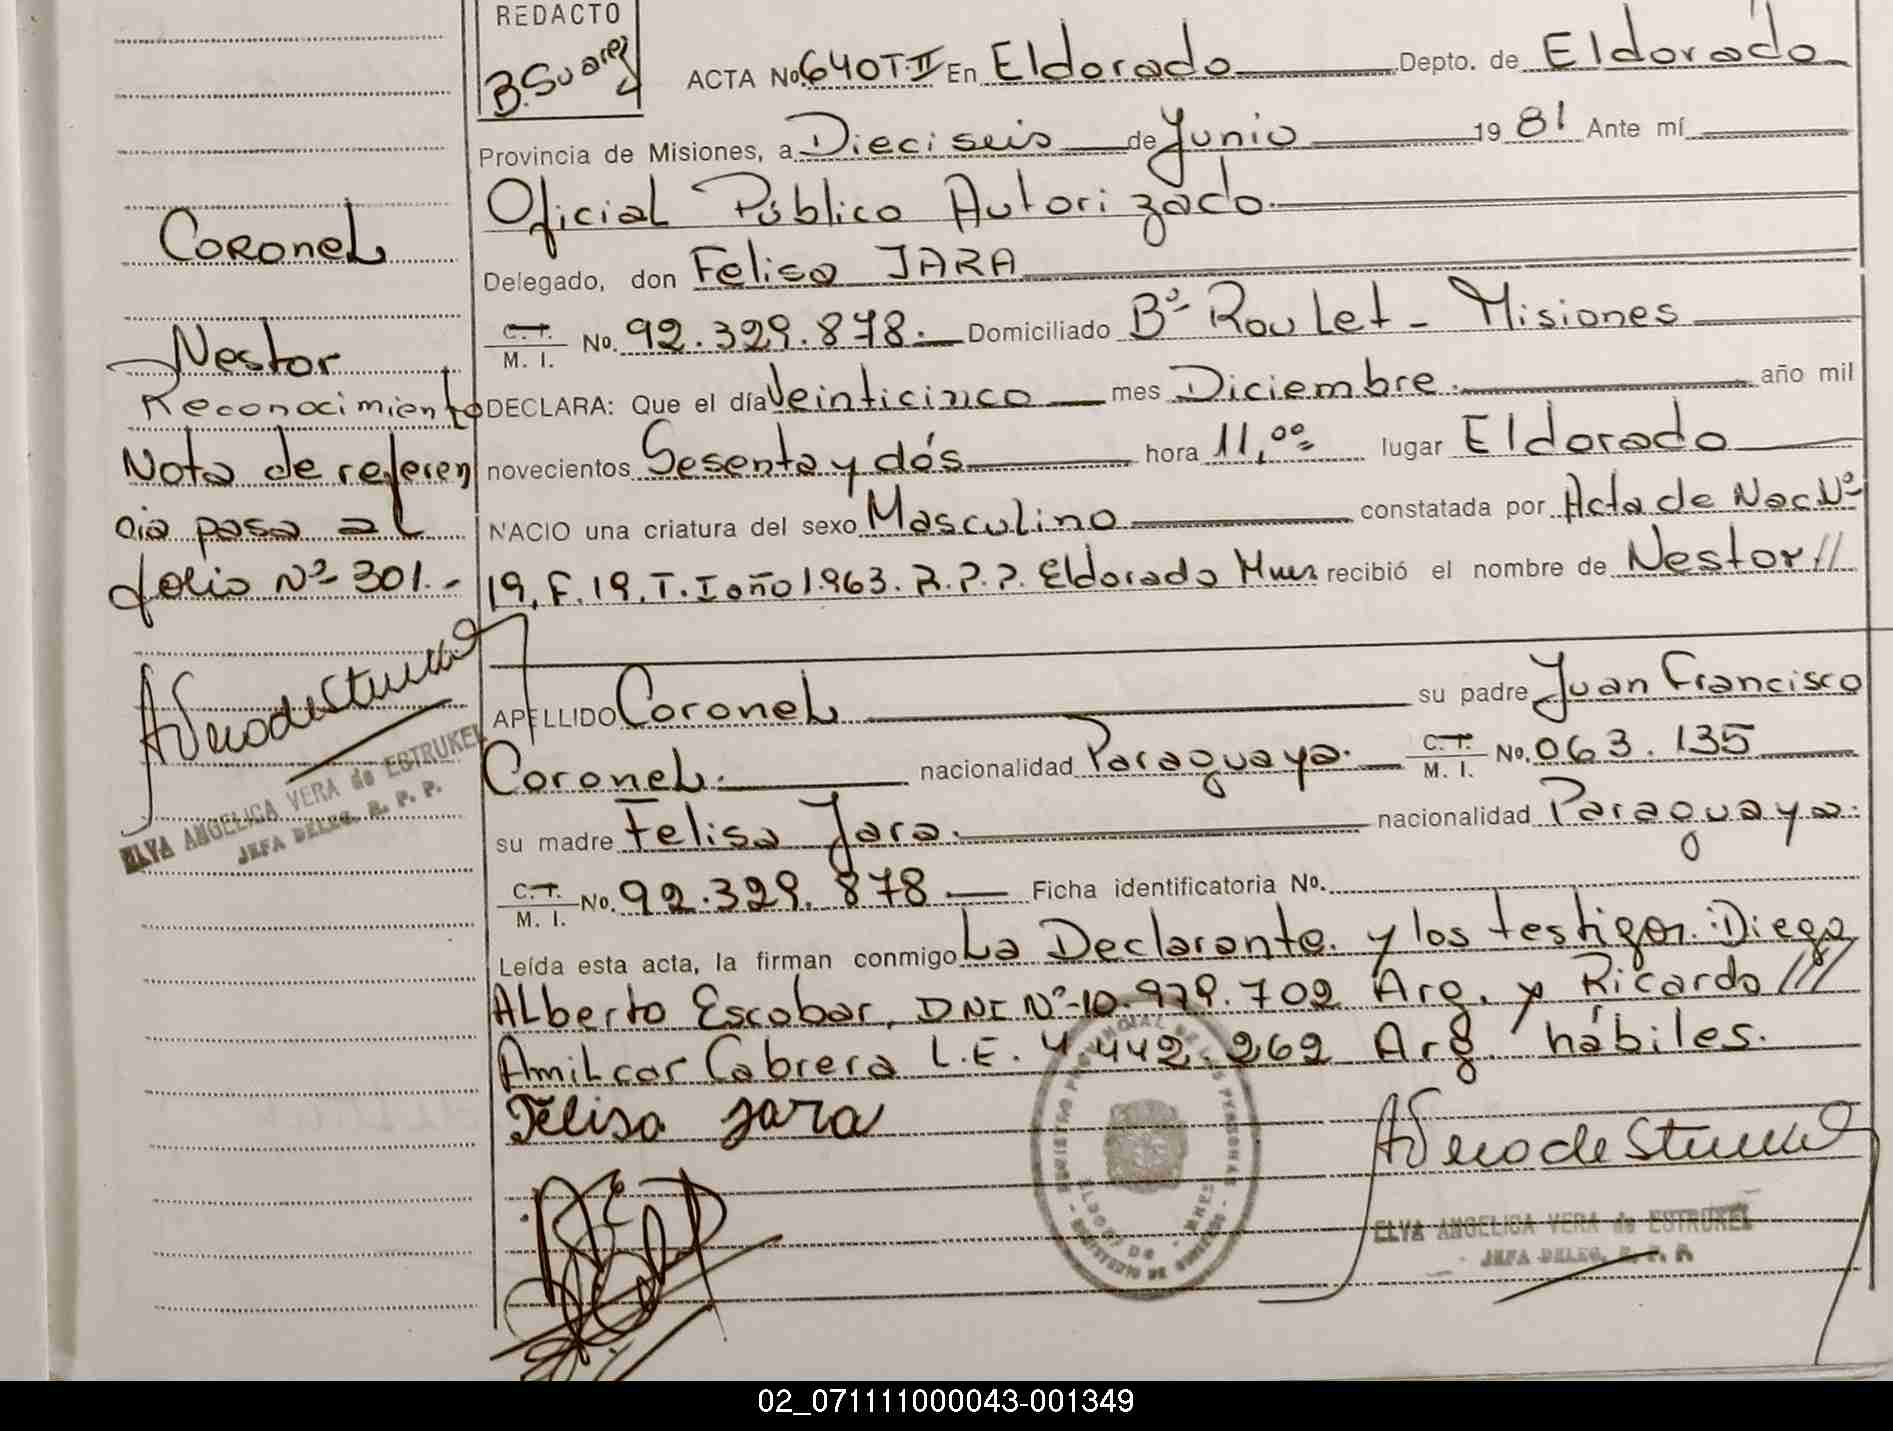 REDACTO
B. Suarez
ACTA No. 640 T·II En Eldorado Depto. de Eldorado
Provincia de Misiones, a Dieciseis de Junio 19 81 Ante mí
Oficial Público Autorizado
Delegado, don Felisa JARA
C.T. M. I. No. 92.329.878.- Domiciliado Bº Roulet - Misiones
DECLARA: Que el día Veinticinco mes Diciembre. año mil
novecientos Sesenta y dós hora 11,00 lugar Eldorado
NACIO una criatura del sexo Masculino constatada por Acta de Nac Nº
19. F. 19. T. I año 1963. R.P.P. Eldorado Mnes recibió el nombre de Nestor //
APELLIDO Coronel su padre Juan Francisco
Coronel. nacionalidad Paraguaya. C.T. M. I. No. 063.135
su madre Felisa Jara. nacionalidad Paraguaya.
C.T. M. I. No. 92.329.878 Ficha identificatoria No.
Leída esta acta, la firman conmigo La Declarante. y los testigos: Diego
Alberto Escobar, DNI Nº 10.979.702 Arg. y Ricardo ///
Amilcar Cabrera L.E. 4.442.262 Arg. hábiles.
Felisa Jara
ELVA ANGELICA VERA de ESTRUKEL
JEFA DELEG. R. P. P.
Coronel
Nestor
Reconocimiento
Nota de referen
cia pasa al
folio Nº 301.-
ELVA ANGELICA VERA de ESTRUKEL
JEFA DELEG. R. P. P.
02_071111000043-001349